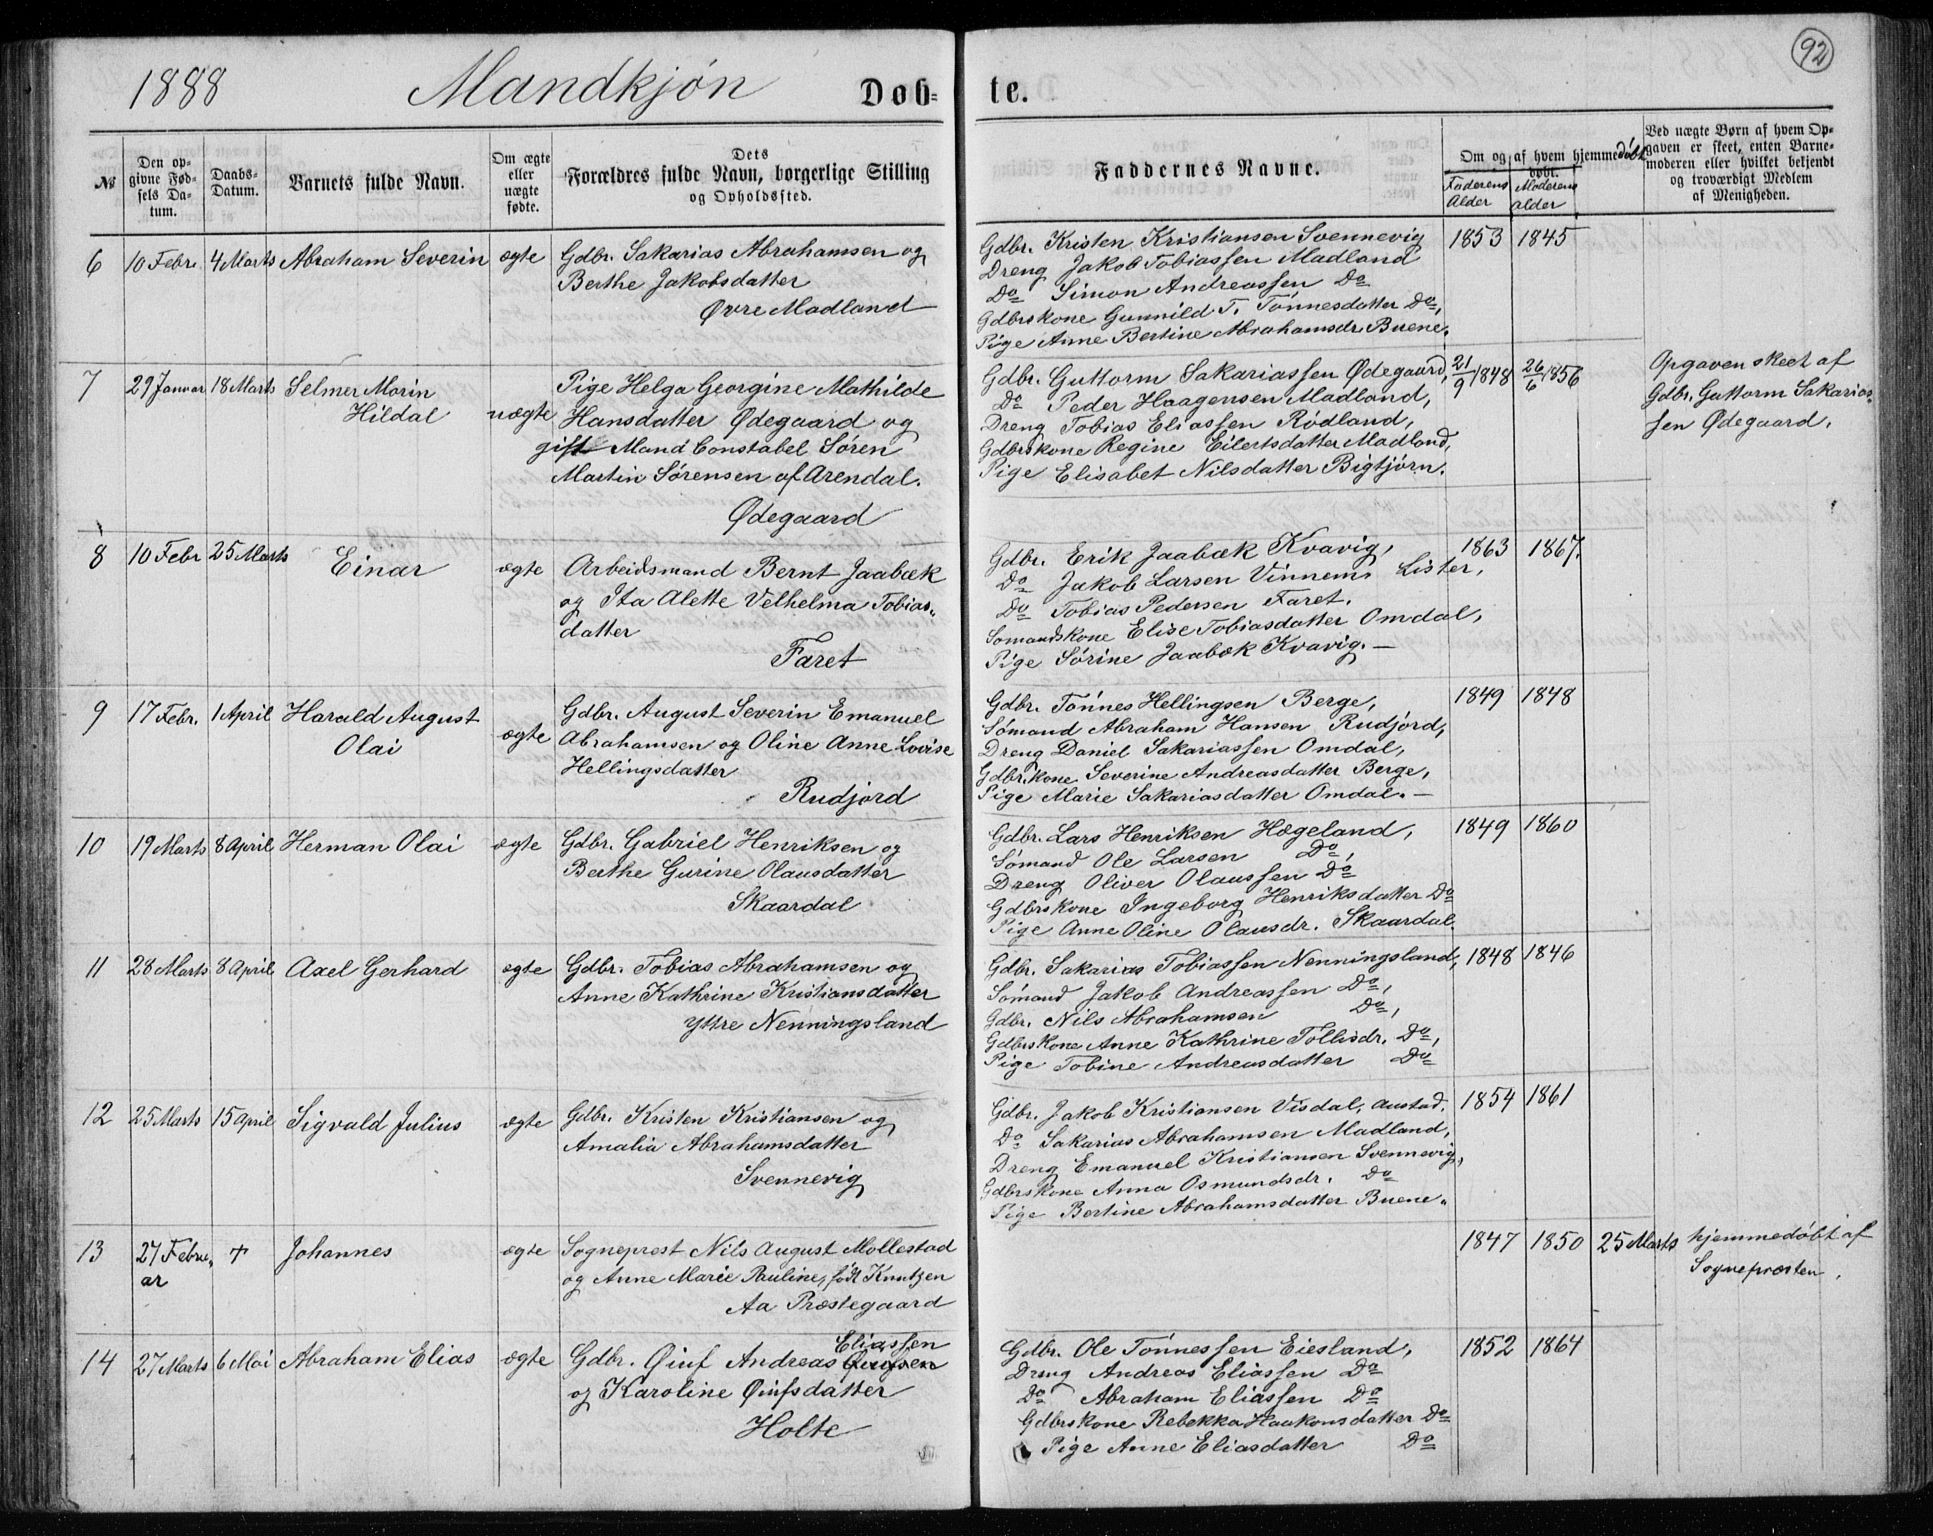 92
1888 Mandkjøn Døb- te.
№
Den op-
givne Fød-
sels Da-
tum.
Daabs-
Datum.
Barnets fulde Navn.
Om ægte
eller
uægte
fødte.
Dets
Forældres fulde Navn, borgerlige Stilling
og Opholdssted.
Faddernes Navne.
Om og af hvem hjemmedøbt
døbt.
Faderens
Alder
Moderens
alder
Ved uægte Børn af hvem Op-
gaven er skeet, enten Barne-
moderen eller hvilket bekjendt
og troværdigt Medlem
af Menigheden.
6 10 Febr. 4 Marts Abraham Severin ægte
Gdbr. Sakarias Abrahamsen og
Berthe Jakobsdatter
Øvre Madland
Gdbr. Kristen Kristiansen Svennevig
Dreng Jakob Tobiassen Madland
Do Simon Andreassen Do
Gdbrskone Gunnild T. Tønnesdatter Do,
Pige Anne Bertine Abrahamsdr Buene.
1853 1845
7 29 Januar 18 Marts Selmer Morin
Hildal
uægte
Pige Helga Georgine Mathilde
Hansdatter Ødegaard og
gift Mand Constabel Søren
Martin Sørensen af Arendal.
Ødegaard
Gdbr. Guttorm Sakariassen Ødegaard,
Do Peder Haagensen Madland,
Dreng Tobias Eliassen Rødland,
Gdbrskone Regine Eilertsdatter Madland,
Pige Elisabet Nilsdatter Bigtjørn.
21/9 1848 26/6 1856
Opgaven skeet af
Gdbr. Guttorm Sakarias-
sen Ødegaard.
8 10 Febr 25 Marts Einar ægte
Arbeidsmand Bernt Jaabæk
og Ita Alette Velhelma Tobias-
datter
Faret
Gdbr. Erik Jaabæk Kvavig,
Do Jakob Larsen Vinnem Lister,
Do Tobias Pedersen Faret.
Sømandskone Elise Tobiasdatter Omdal,
Pige Sørine Jaabæk Kvavig. —
1863 1867.
9 17 Febr. 1 April Harald August
Olai
ægte
Gdbr. August Severin Emanuel
Abrahamsen og Oline Anne Lovise
Hellingsdatter
Rudjord
Gdbr. Tønnes Hellingsen Berge,
Sømand Abraham Hansen Rudjord,
Dreng Daniel Sakariassen Omdal,
Gdbr.kone Severine Andreasdatter Berge,
Pige Marie Sakariasdatter Omdal. —
1849 1848
10 19 Marts 8 April Herman Olai ægte
Gdbr. Gabriel Henriksen og
Berthe Gurine Olausdatter
Skaardal
Gdbr. Lars Henriksen Hægeland,
Sømand Ole Larsen Do,
Dreng Oliver Olaussen Do
Gdbrskone Ingeborg Henriksdatter Do
Pige Anne Oline Olausdr. Skaardal.
1849 1860
11 28 Marts 8 April Axel Gerhard ægte
Gdbr. Tobias Abrahamsen og
Anne Kathrine Kristiansdatter
Yttre Nenningsland
Gdbr. Sakarias Tobiassen Nenningsland,
Sømand Jakob Andreassen Do,
Gdbr. Nils Abrahamsen Do,
Gdbrskone Anne Kathrine Tollisdr. Do,
Pige Tobine Andreasdatter Do
1848 1846
12 25 Marts 15 April Sigvald Julius ægte
Gdbr. Kristen Kristiansen og
Amalia Abrahamsdatter
Svennevig
Gdbr. Jakob Kristiansen Visdal, Austad.
Do Sakarias Abrahamsen Madland,
Dreng Emanuel Kristiansen Svennevig,
Gdbrskone Anna Osmundsdr. Do
Pige Bertine Abrahamsdatter Buene.
1854 1861
13 27 Febru-
ar
+ Johannes ægte
Sogneprest Nils August Mollestad
og Anne Marie Pauline, født Knutzen
Aa Præstegaard
1847 1850 25 Marts
hjemmedøbt af
Sognepræsten.
14 27 Marts 6 Mai Abraham Elias ægte
Eliassen
Gdbr. Øiuf Andreas
og Karoline Øiufsdatter
Holte
Gdbr. Ole Tønnessen Eiesland,
Dreng Andreas Eliassen Do
Do Abraham Eliassen Do
Gdbrskone Rebekka Haakonsdatter Do
Pige Anne Eliasdatter Do
1852 1864